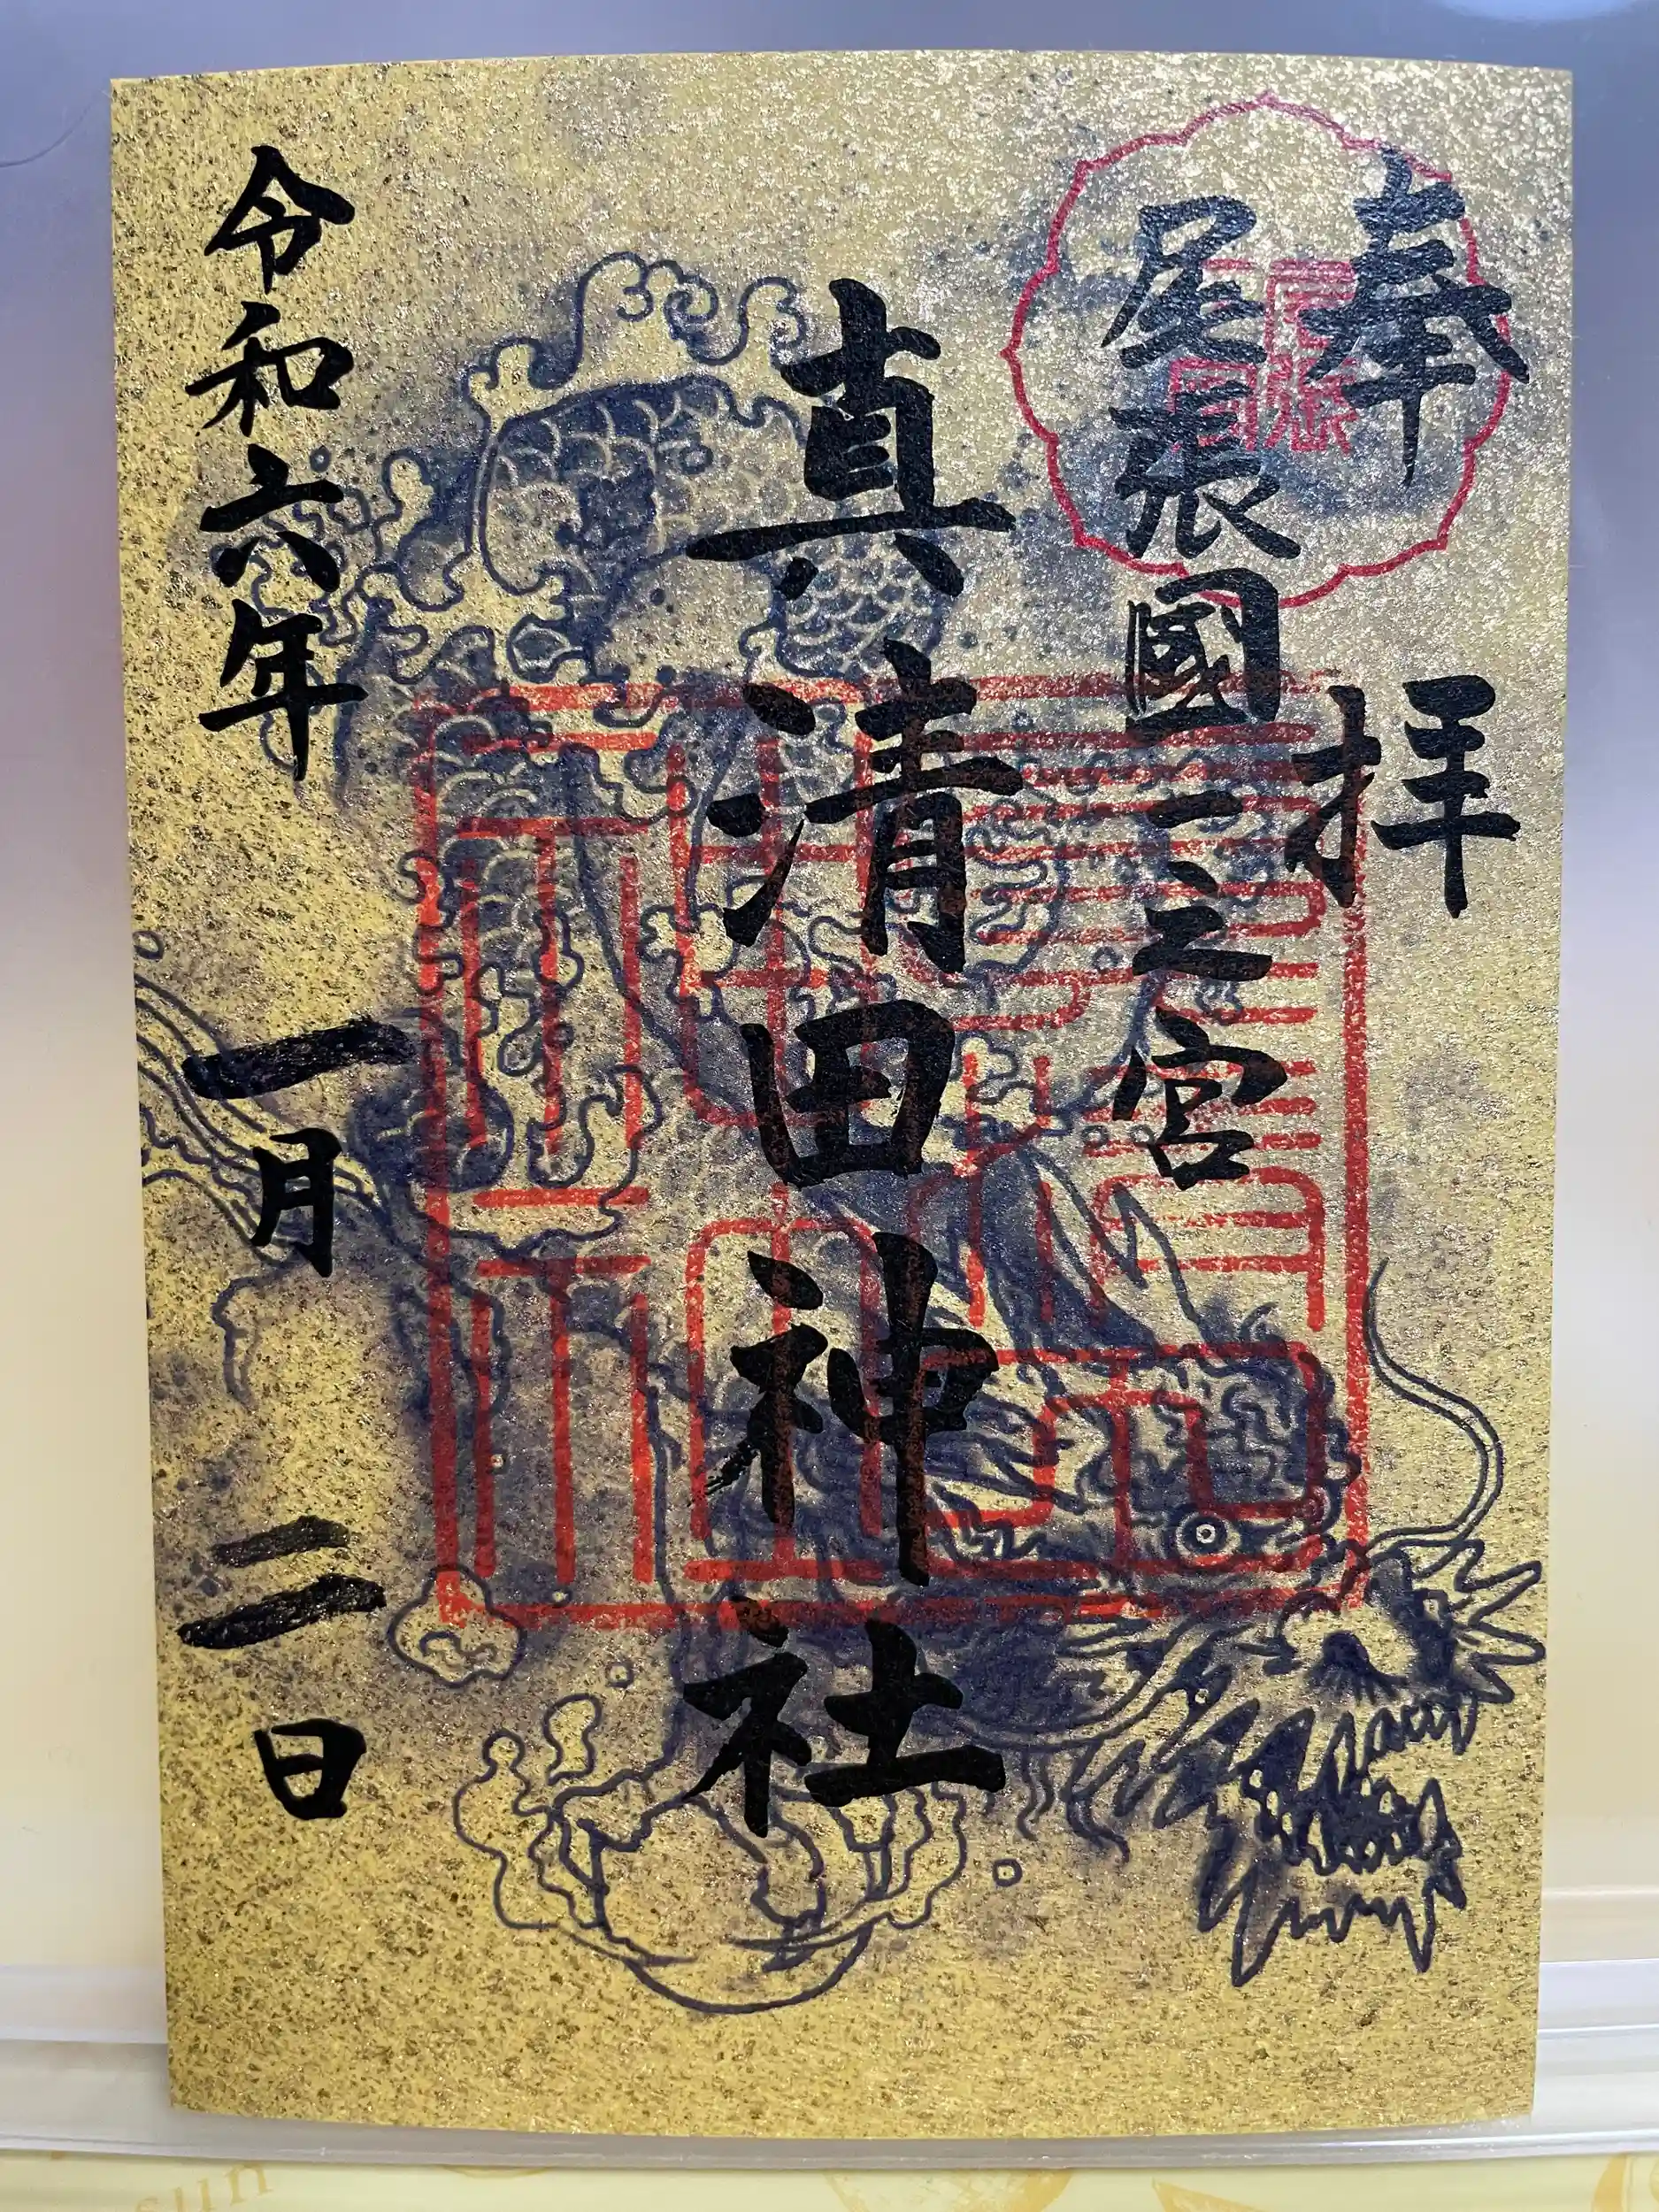 奉拝
尾張國一之宮
真清田神社
令和六年 一月 二日
sun